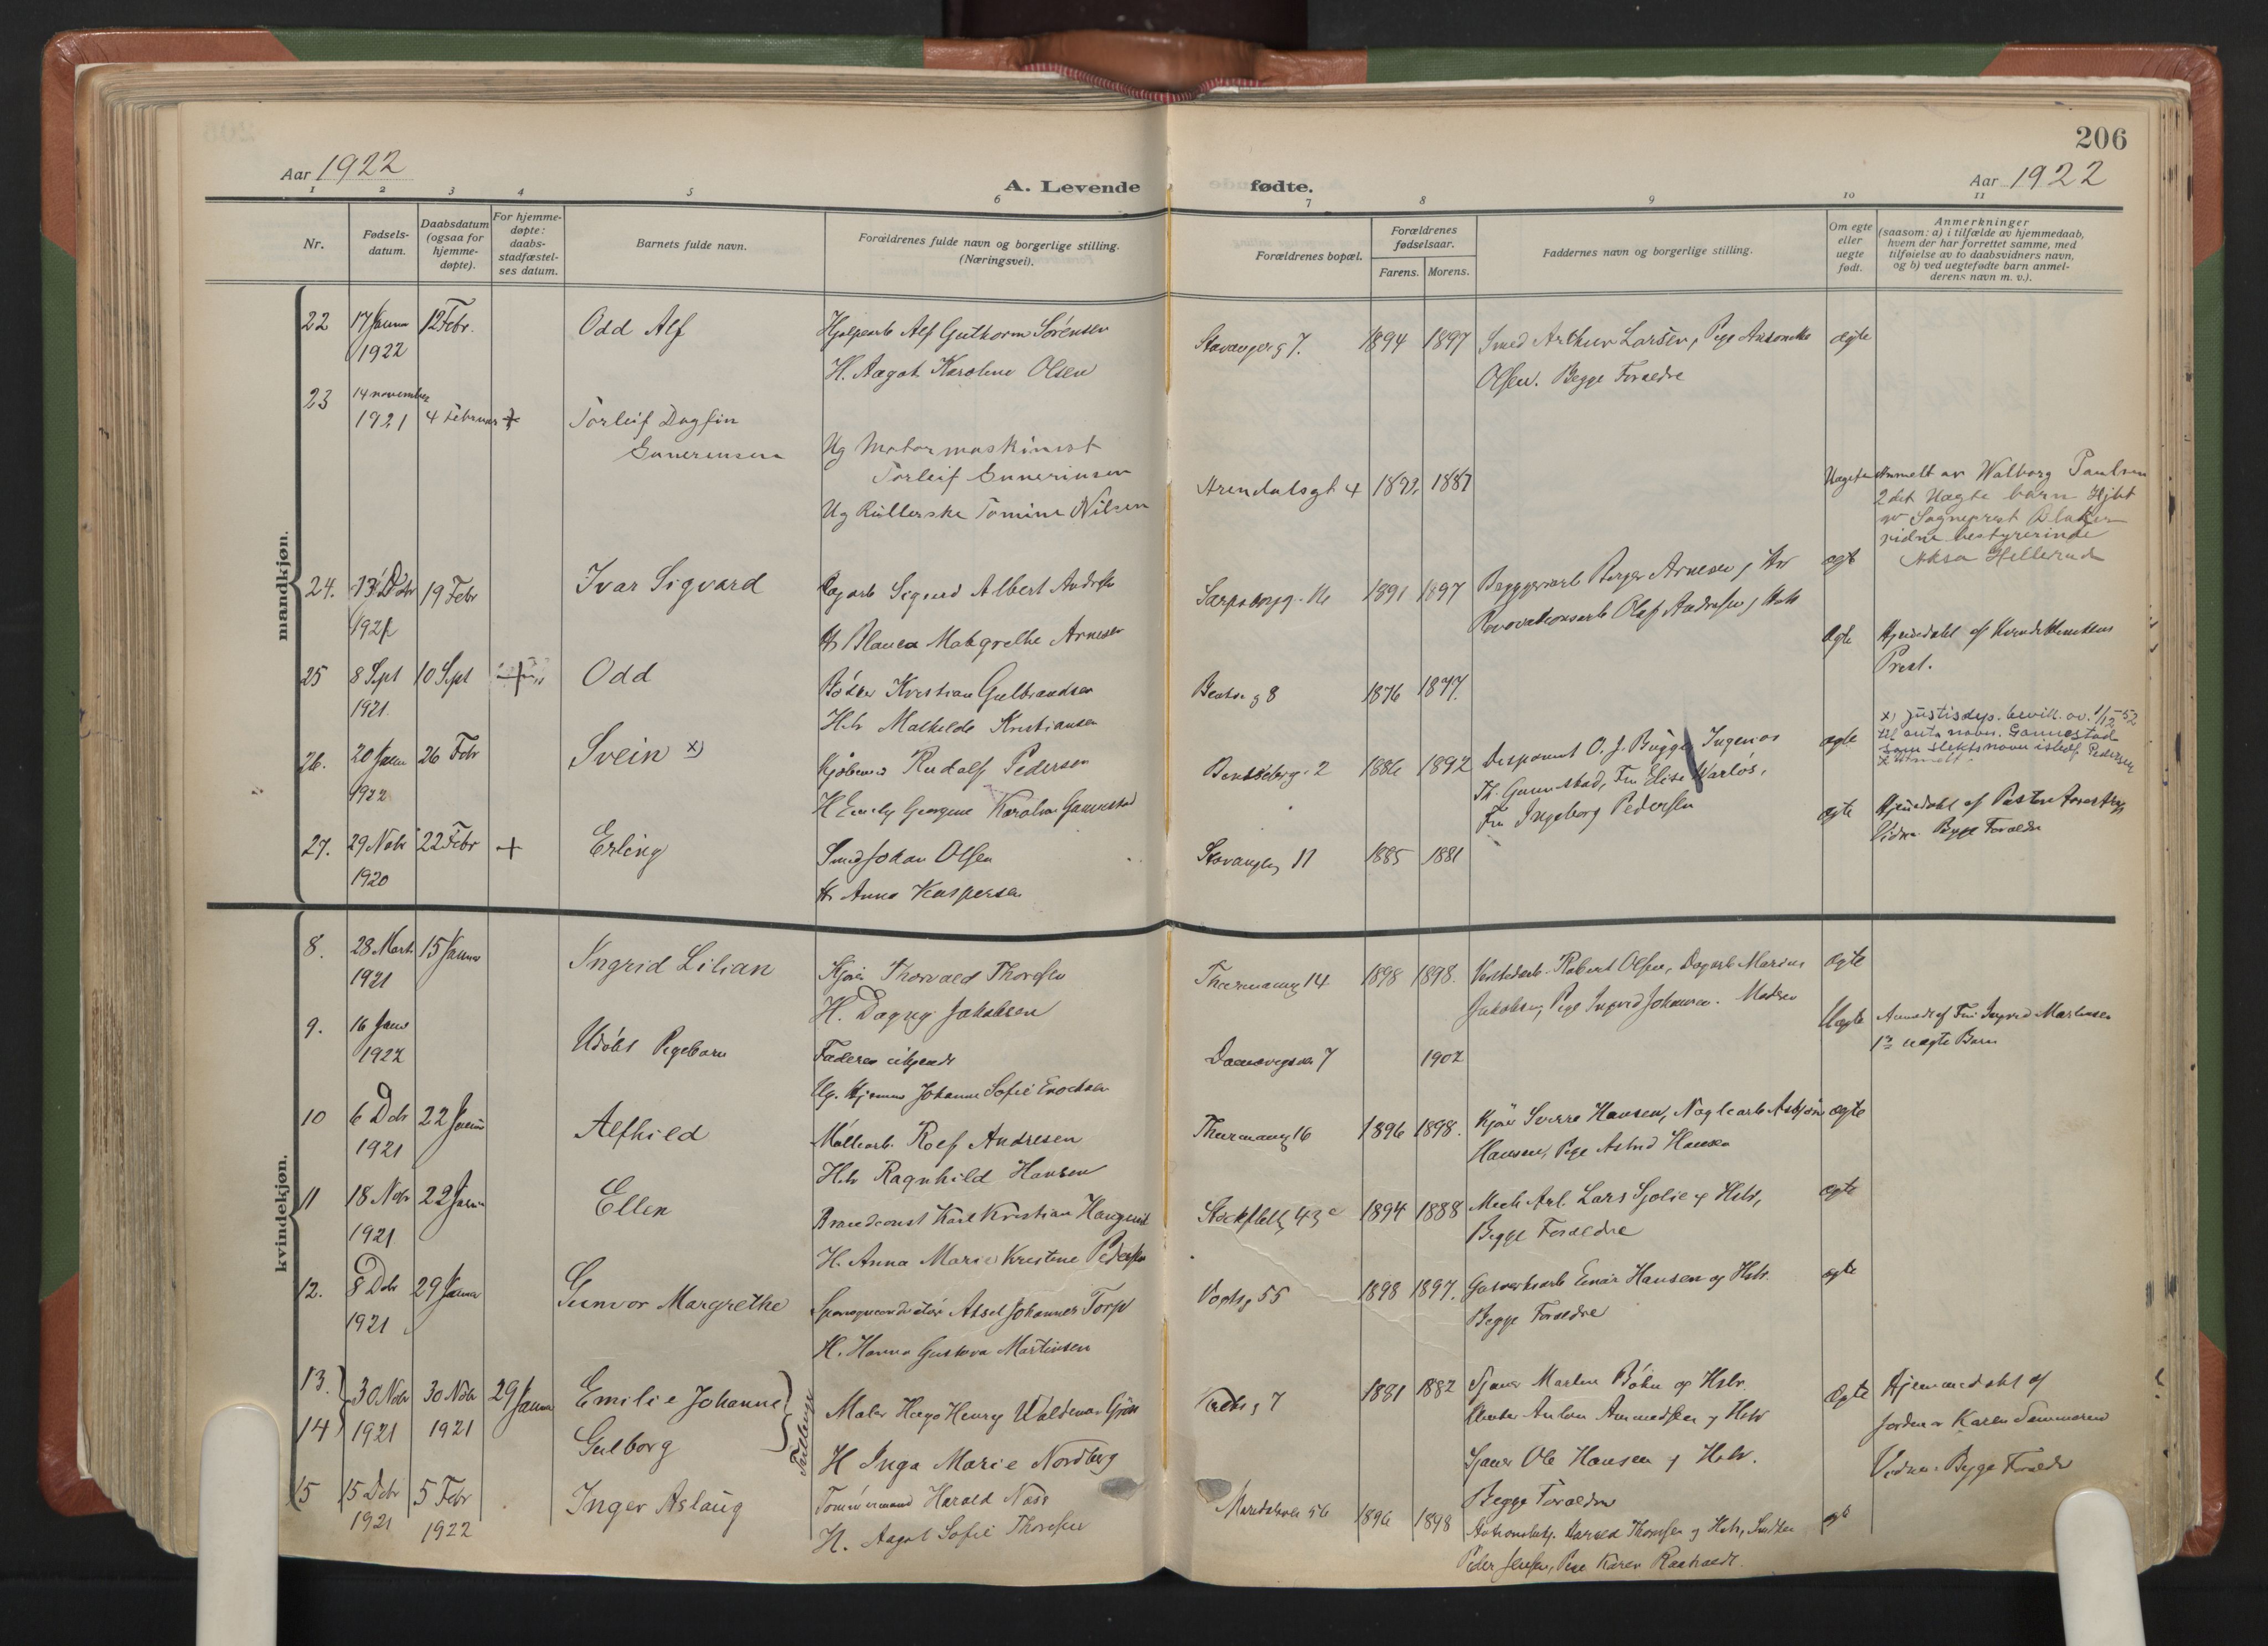 206
Aar 1922
A. Levende fødte.
Aar 1922
1 2 3 4 5 6 7 8 9 10 11
Nr.
Fødsels-
datum.
Daabsdatum
(ogsaa for
hjemme-
døpte).
For hjemme-
døpte:
daabs-
stadfæstel-
ses datum.
Barnets fulde navn.
Forældrenes fulde navn og borgerlige stilling.
(Næringsvei).
Forældrenes bopæl.
Forældrenes
fødselsaar.
Farens. Morens.
Faddernes navn og borgerlige stilling.
Om egte
eller
uegte
født.
Anmerkninger
(saasom: a) i tilfælde av hjemmedaab,
hvem der har forrettet samme, med
tilføielse av to daabsvidners navn,
og b) ved uegtefødte barn anmel-
derens navn m. v.).
mandkjøn.
22 17 Januar 12 Febr. Odd Alf Alf Guthorm Sørensen
1922
H. Aagot Karoline Olsen
Stavangerg 7. 1894 1897 Smed Arthur Larsen, Pige
Olsen. Begge Forældre
ægte
23 14 november
1921 4 Februar + Torleif Dagfin
Gunerensen
Ug Motormaskinist
Torleif Gunerinsen
Ug Rullerske Tomine Nilsen
Arendalsgt 4 1892, 1887
Uægte Anmelt av Walborg Paulsen
2det Uægte barn Hjbt
av Sogneprest
vidne bestyrerinde
Aksa Hellerud
24. 13 Debr 19 Febr Ivar Sigvard Sigurd Albert
1921
H Blanca Margrethe Arnesen
Sarpsborgg. 16 1891 1897 Byggearb Birger Arnesen og Hr
Renovationsarb Olaf Andresen og Hstr
ægt
25 8 Sept 10 Sept Odd Bødker Kristian Gulbrandsen
1921.
Hstr Mathilde Kristiansen
8 1876 1877.
Ægte Hjemdøbt af Kvindeklinikkens
Prest.
26. 20 Janu 26 Febr Svein x) Rudolf Pedersen
1922
H Emely Georgine Karoline Gannestad
2 1886 1892 Disponent O. J. Bugge, Ingeniør
Th. Gannestad, Fru Elise Warløs,
Fru Ingeborg Pedersen
ægte
x) Justisdep. bevill. av. 1/12-52
til anta navn. Gannestad
som slektsnavn istedf. Pedersen
27. 29 Nobr 22 Febr + Erling Smed Johan Olsen
1920
H Anna Kaspersen
Stavangerg 11 1885 1881
ægte Hjemdøbt af Pastor
Vidne. Begge Forældre
kvindekjøn.
8. 28 Marts 15 Januar Ingrid Lilian Kjører Thorvald Thoresen
1921
H. Dagny Jakobsen
Thurmanng 14 1898 1898. Robert Olsen, Dagarb Marius
Jakobsen, Pige Ingrid Johansen. Moderen
ægte
9. 16 Janr Udøbt Pigebarn Faderen ukjendt
1922
Ug. Johanne Sofie Enochsen
7 1902
Uægte Anmeldt af Fru Ingrid Martinsen
1ste uægte Barn
10 6 Debr 22 Januar Alfhild Møllearb. Rolf Andresen
1921
Hstr Ragnhild Hansen
Thurmanng 16 1896 1898. Kjører Sverre Hansen, Naglearb Asbjørn
Hansen, Pige Astrid Hansen
ægte
11 18 Nobr 22 Januar Ellen Brandconst Karl Kristian
1921
H. Anna Marie Kristine Pedersen
Stockfletg 43 c 1894 1888 Mek Arb. Lars Sjolie og Hstr,
Begge Forældre
ægte
12. 8 Debr 29 Januar Gunvor Margrethe Sporveiskonduktør Aksel Johannes Torp
1921
H. Hanna Gustava Martinsen
Vogtsg 55 1898 1897. Gasverksarb Einar Hansen og Hstr.
Begge Forældre
ægte
13. 30 Nobr 30 Nobr 29 Januar Emilie Johanne
14 1921 1921 Gulborg
Tvillinger
Maler Hugo Henry Waldemar
H Inga Marie Nordberg
7 1881 1882 Sjauer Martin Bøhn og Hstr.
Anton Amundsen og Hstr
Sjauer Ole Hansen og Hstr.
Begge Forældre
Ægte Hjemmedøbt af
Jordmor Karen Simmerud
Vidne: Begge Forældre
15 15 Debr 5 Febr Inger Aslaug Tømmermand Harald Næss
1921 1922
H. Aagot Sofie Thoresen
56 1896 1898 Harald Thoresen og Hstr,
Peder Jensen, Pige Karen